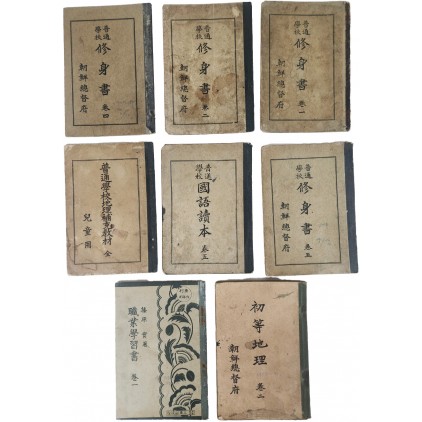 普通學校 修身書 卷四
朝鮮總督府
普通學校 修身書 卷二
朝鮮總督府
普通學校 修身書 卷一
朝鮮總督府
普通學校地理補充教材 全
兒童用
普通學校 國語讀本 卷五
普通學校 修身書 卷五
朝鮮總督府
職業學習書 卷一
初等地理 卷二
朝鮮總督府